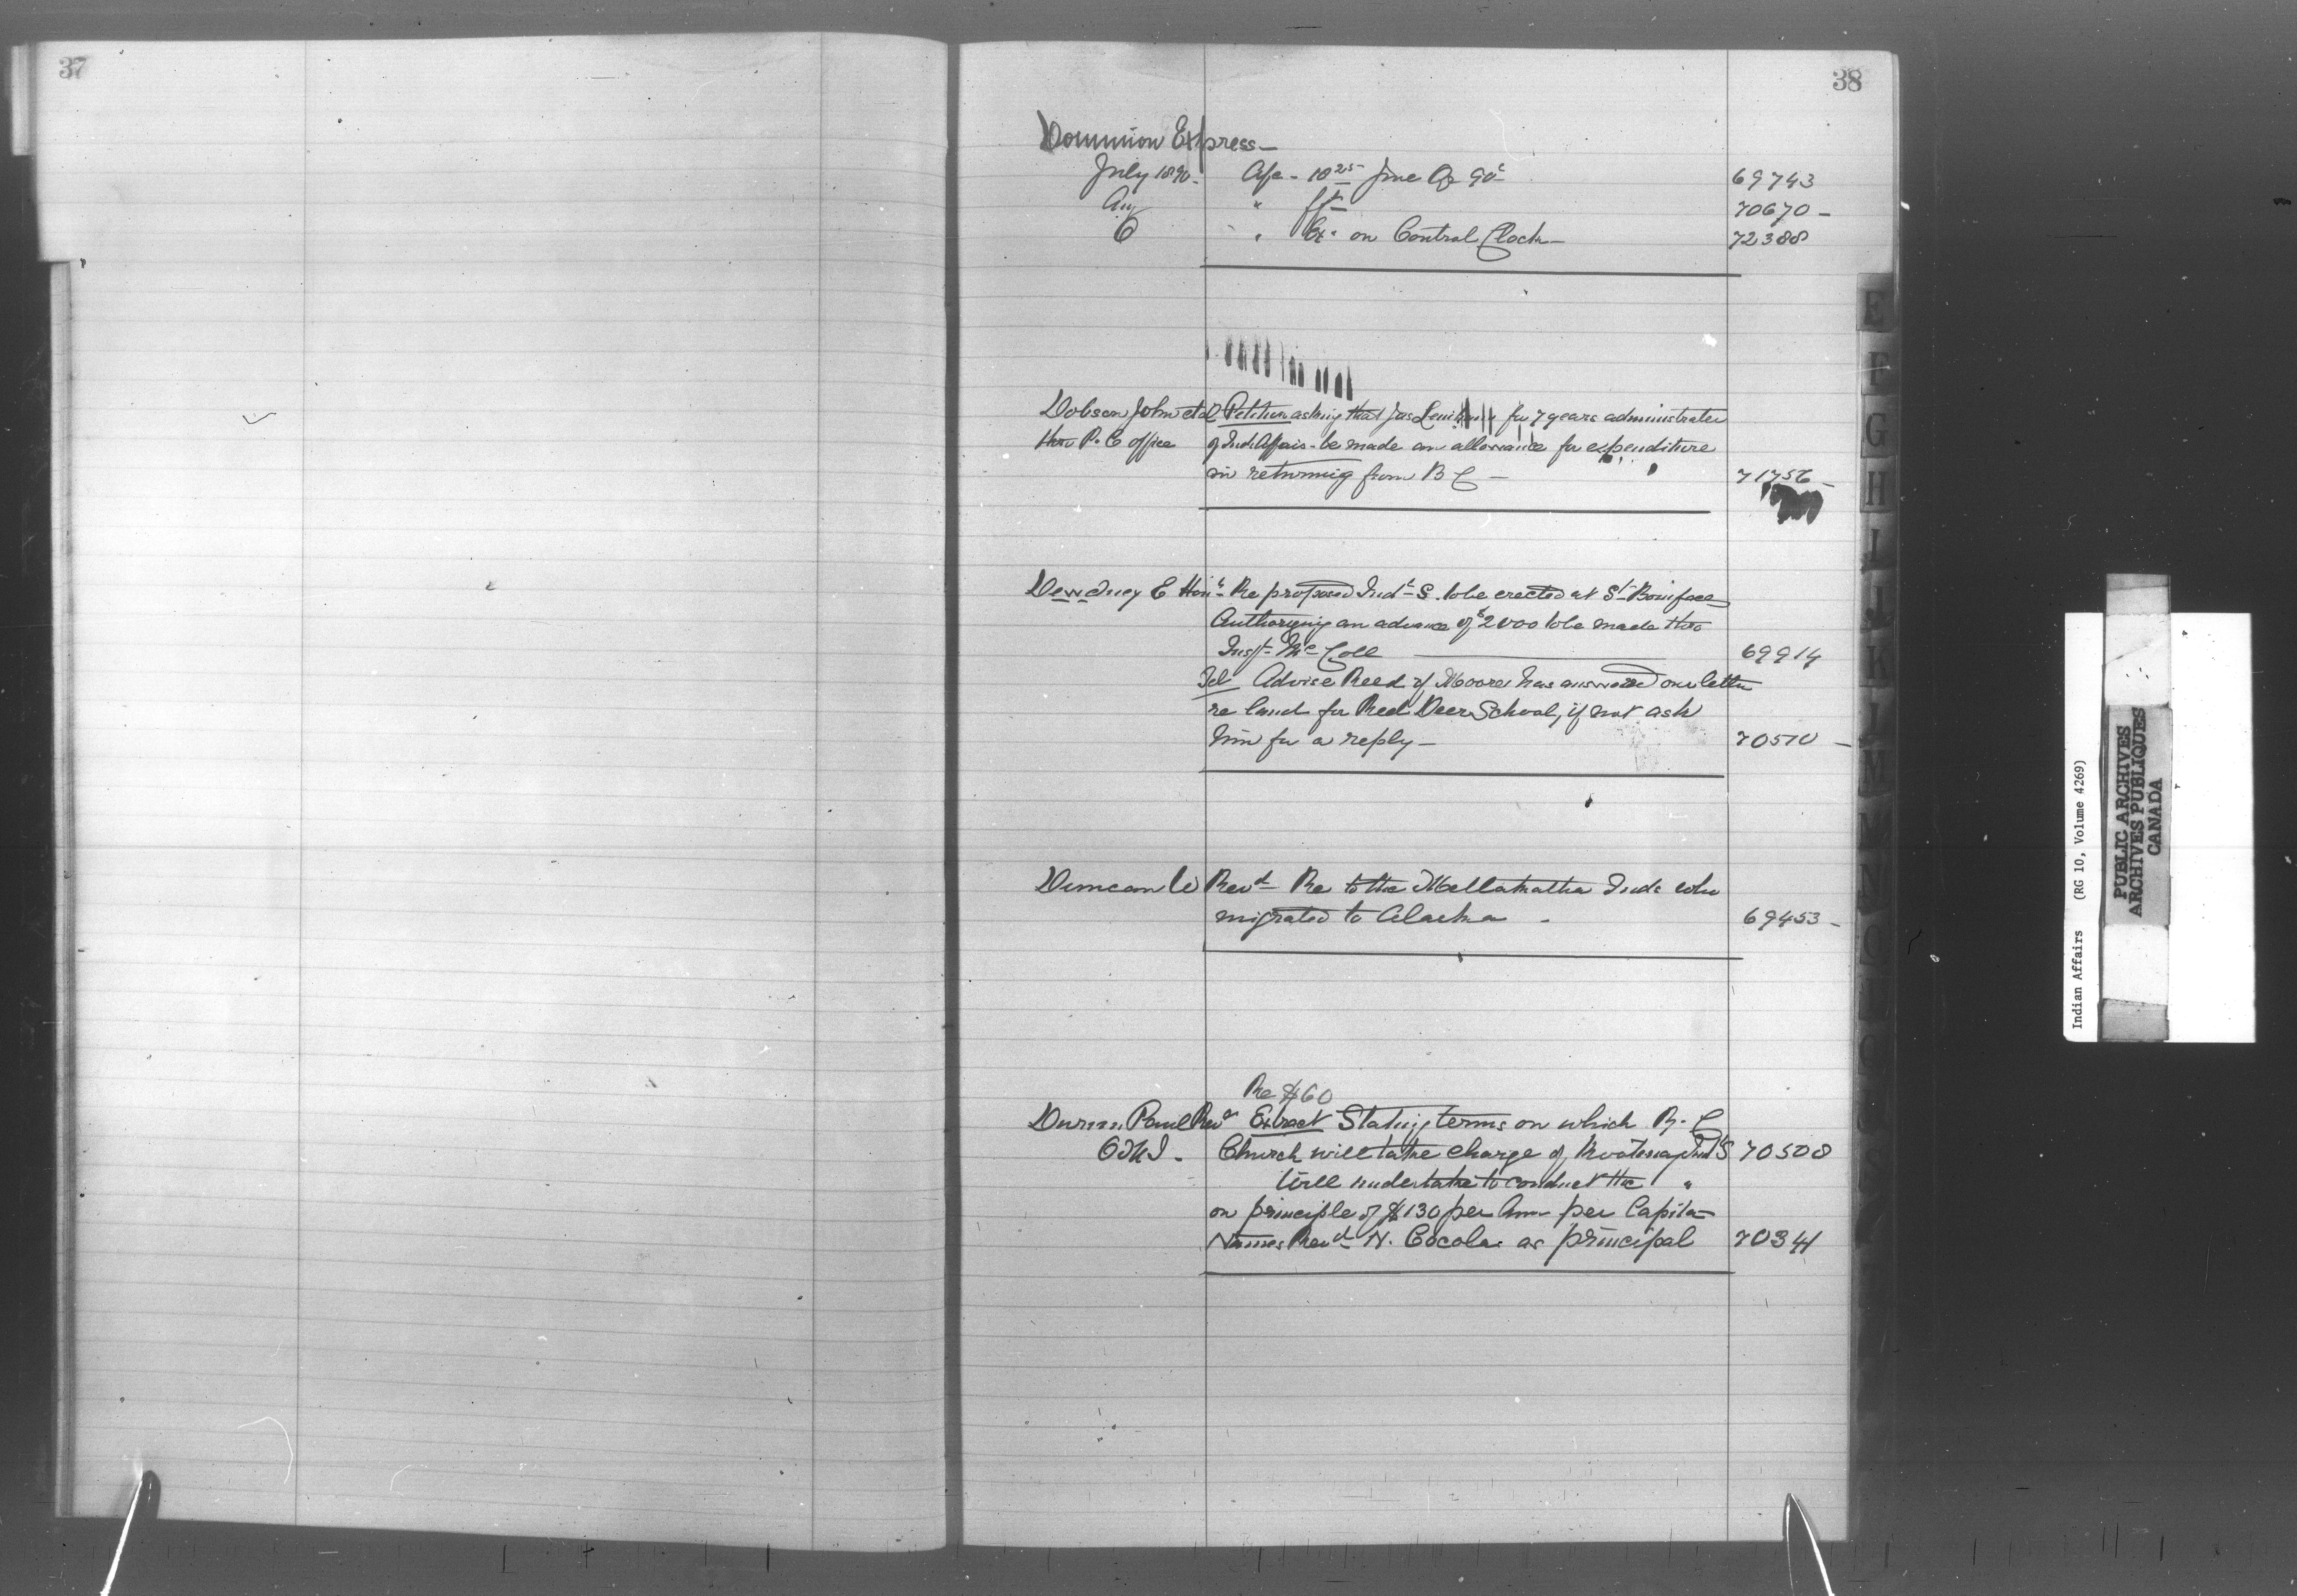 37
38
Dominion Express —
July 1890 - a/c - 10 25 June a/c 90c 69743
Aug " 70670 -
" on Control Clock - 72388
Dobson John et al Petition asking that Jas for 7 years administrator
thro P. C office of Ind. Affairs - be made an allowance for expenditure
in returning from B C — 71756 -
Dewdney E Hon. Re proposed Indl S. to be erected at St Boniface
Authorizing an advance of $2000 to be made thro
Inspt Mc Coll 69914
Tel Advise Reed if Moore has answered our letter
re land for Red Deer School, if not ask
him for a reply — 70570 -
Duncan W Revd Re to the Metlakatla Inds who
migrated to Alaska - 69453 -
Re $60
Durieu Paul Revd Extract Stating terms on which R. C
O.M.I - Church will take charge of Kootenay Indl S 70508
Will undertake to conduct the "
on principle of $130 per Ann per Capita
Names Revd N. Cocola as principal 70341
E
F
G
H
I
J
K
L
M
Indian Affairs (RG 10, Volume 4269)
PUBLIC ARCHIVES
ARCHIVES PUBLIQUES
CANADA